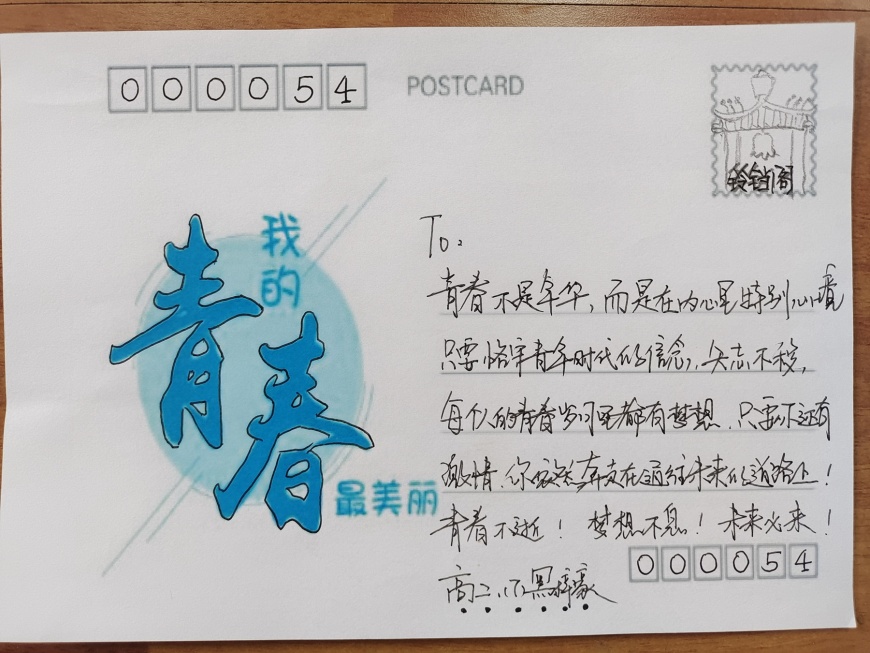 000054
POSTCARD
铃铛阁
我的
青春
最美丽
To:
青春不是年华，而是在内心里特别心境
只要恪守青年时代的信念，矢志不移，
每个人的青春岁月里都有梦想，只要你还有
激情，你依然奔走在通往未来的道路上！
青春不逝！梦想不息！未来必来！
000054
高二